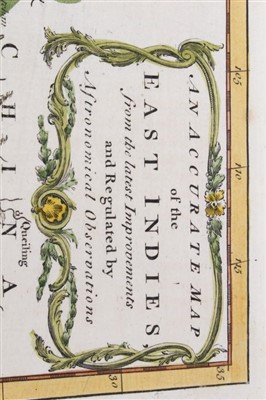 AN ACCURATE MAP
of the
EAST INDIES,
from the latest Improvements
and Regulated by
Astronomical Observations
CHINA
Queiling
105
110
145
30
35